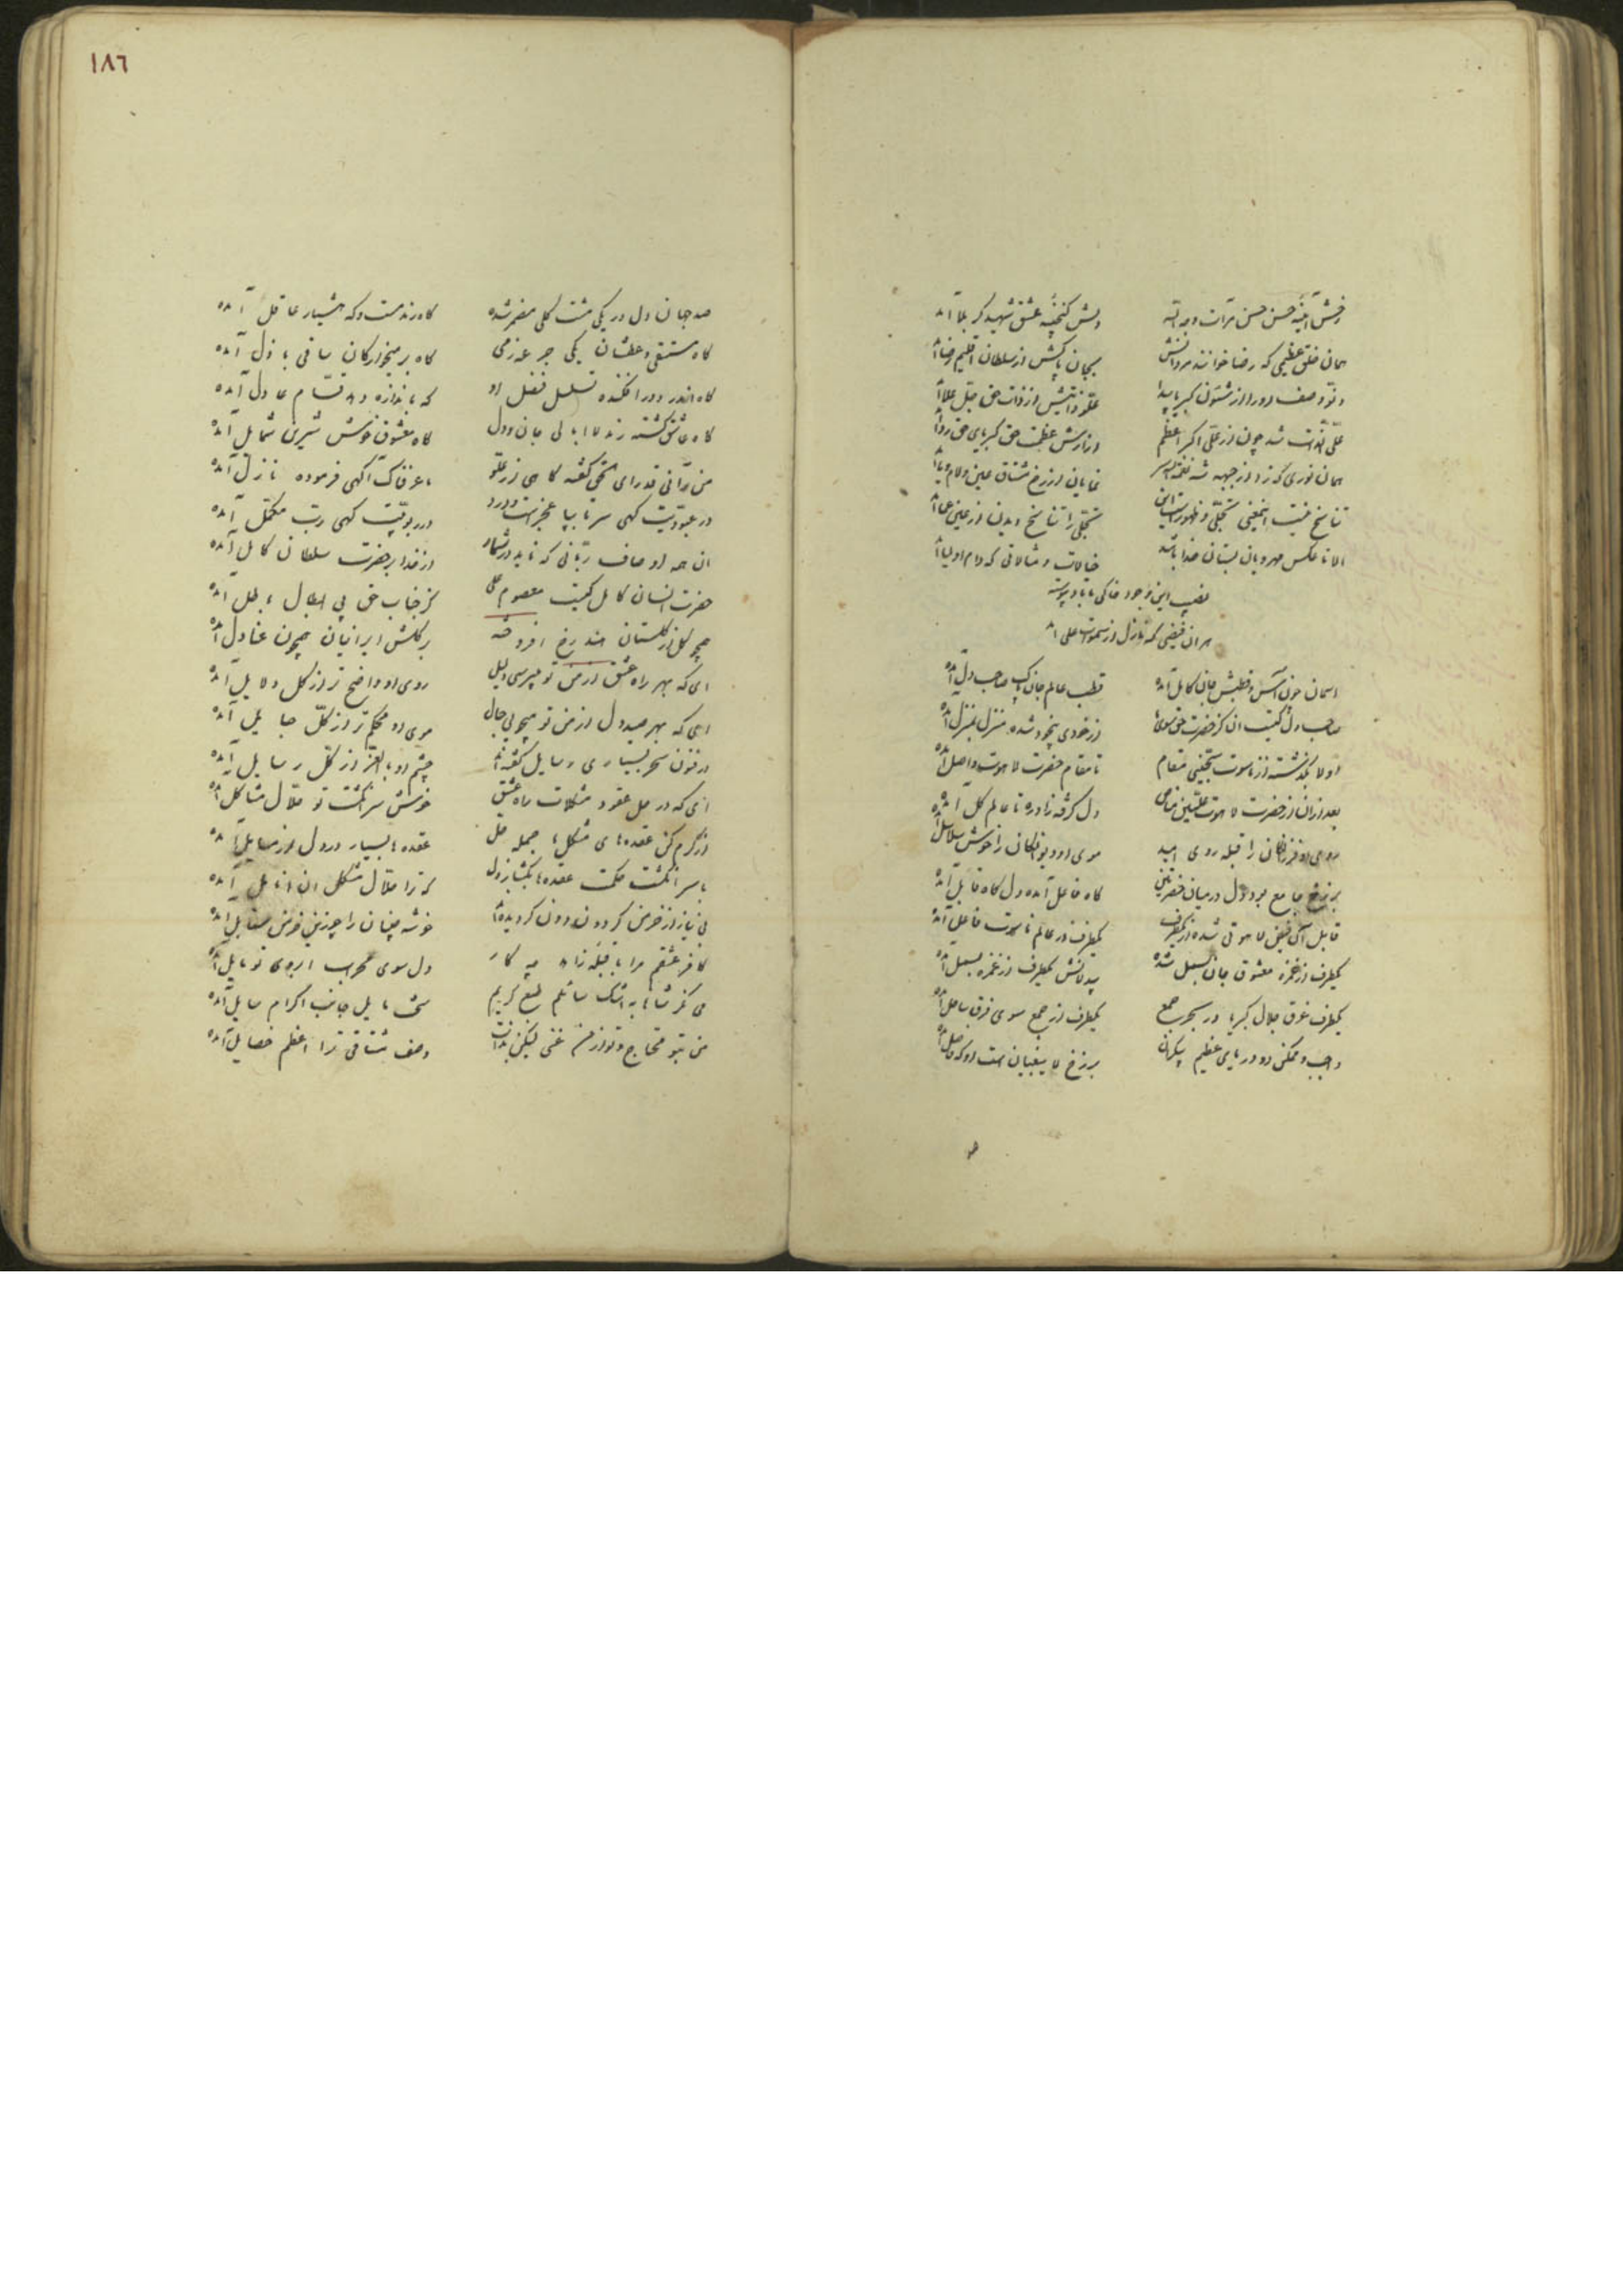 رخش آیینه حسن حسن مرآت وجه الله دلش گنجینه عشق شهید کربلا آمد
همان خلق عظیمی که رضا خوانند مردانش بجان پاکش از سلطان اقلیم رضا آمد
علو ذاتیش از ذات حق جل علا آمد
علی الذات شد چون از علی اکبر اعظم وز ارش عظمت حق کبریای حق ردا آمد
همان نوری که زد از جبهه نمایان از رخ مشتاق عین و لام و یا آمد
تناسخ نیست این معنی تجلی و ظهورست این تجلی را تناسخ دیدن از عین عما آمد
الا تا عکس مهرویان بستان خدا باشد خیالات و مثالاتی که دام اولیا آمد
نصیب این وجود خاکی ما باد پیوسته
هر آن فیضی که نازل از سموات علی آمد
آسمان چون آس و قطبش جان کامل آمده قطب عالم جان پاک صاحب دل آمده
صاحب دل کیست آن کز حضرت حق سوی از خودی بیخود شده منزل بمنزل آمده
اولا بگذشته از ناسوت سجینی مقام تا مقام حضرت لاهوت واصل آمده
بعد از آن از حضرت لاهوت علیین مقام دل گرفته زاد ره تا عالم گل آمده
روی او فرزانگان را قبله روی امید موی او دیوانگان را خوش سلاسل آمده
برزخ جامع بود دل در میان حضرتین گاه فاعل آمده دل گاه قابل آمده
قابل آن فیض لاهوتی شده از یکطرف یکطرف در عالم ناسوت فاعل آمده
یکطرف از غمزه معشوق جان بسمل شده بیدلانش یکطرف از غمزه بسمل آمده
یکطرف غرق جلال کبریا در بحر جمع یکطرف از جمع سوی فرق ساحل آمده
واجب و ممکن دو دریای عظیم بیکران برزخ لا یبغیان است او که فاصل آمده
۱۸۶
صد جهان دل در یکی مشت گلی مضمر شده گاه رند مست و گه هشیار عاقل آمده
گاه مستسقی و عطشان یکی جرعه ز می گاه بر میخوارگان ساقی باذل آمده
گاه اندر دور افکنده تسلسل فضل او گه باندازه دهد قسام عادل آمده
گاه عاشق گشته رند لاابالی جان و دل گاه معشوق خوش شیرین شمایل آمده
من رآنی قد رای الحق گفته گاهی از علو ما عرفناک گهی فرموده نازل آمده
در عبودیت گهی سر تا بپا عجزست و درد در ربوبیت گهی رب مکمل آمده
این همه اوصاف ربانی که ناید در شمار از خدا بر حضرت سلطان کامل آمده
حضرت انسان کامل کیست معصوم علی کز جناب حق پی ابطال باطل آمده
همچو گل از گلستان هند رخ افروخته بر گلش ایرانیان همچون عنادل آمده
ای که بهر راه عشق از من تو میپرسی دلیل روی او واضح تر از کل دلایل آمده
ای که بهر صید دل از من تو میجویی حبال موی او محکم تر از کل حبایل آمده
در فنون سحر بسیاری رسایل گفته اند چشم او بالغ تر از کل رسایل آمده
ای که در حل عقود مشکلات راه عشق خوش سر انگشت تو حلال مشاکل آمده
از کرم کن عقده های مشکل ما جمله حل عقده ها بسیار در دل از مسایل آمده
با سر انگشت حکمت عقده ها بگشا ز دل که ترا حلال مشکل آن انامل آمده
بی نیاز از خرمن گردون دون گردیده اند خوشه چینان را چو زین خرمن سنابل آمده
کافر عشقم مرا با قبله زاهد چه کار دل سوی محراب ابروی تو مایل آمده
من بتو محتاج و تو از من غنی لیکن بذات وصف مشتاقی ترا اعظم خصایل آمده